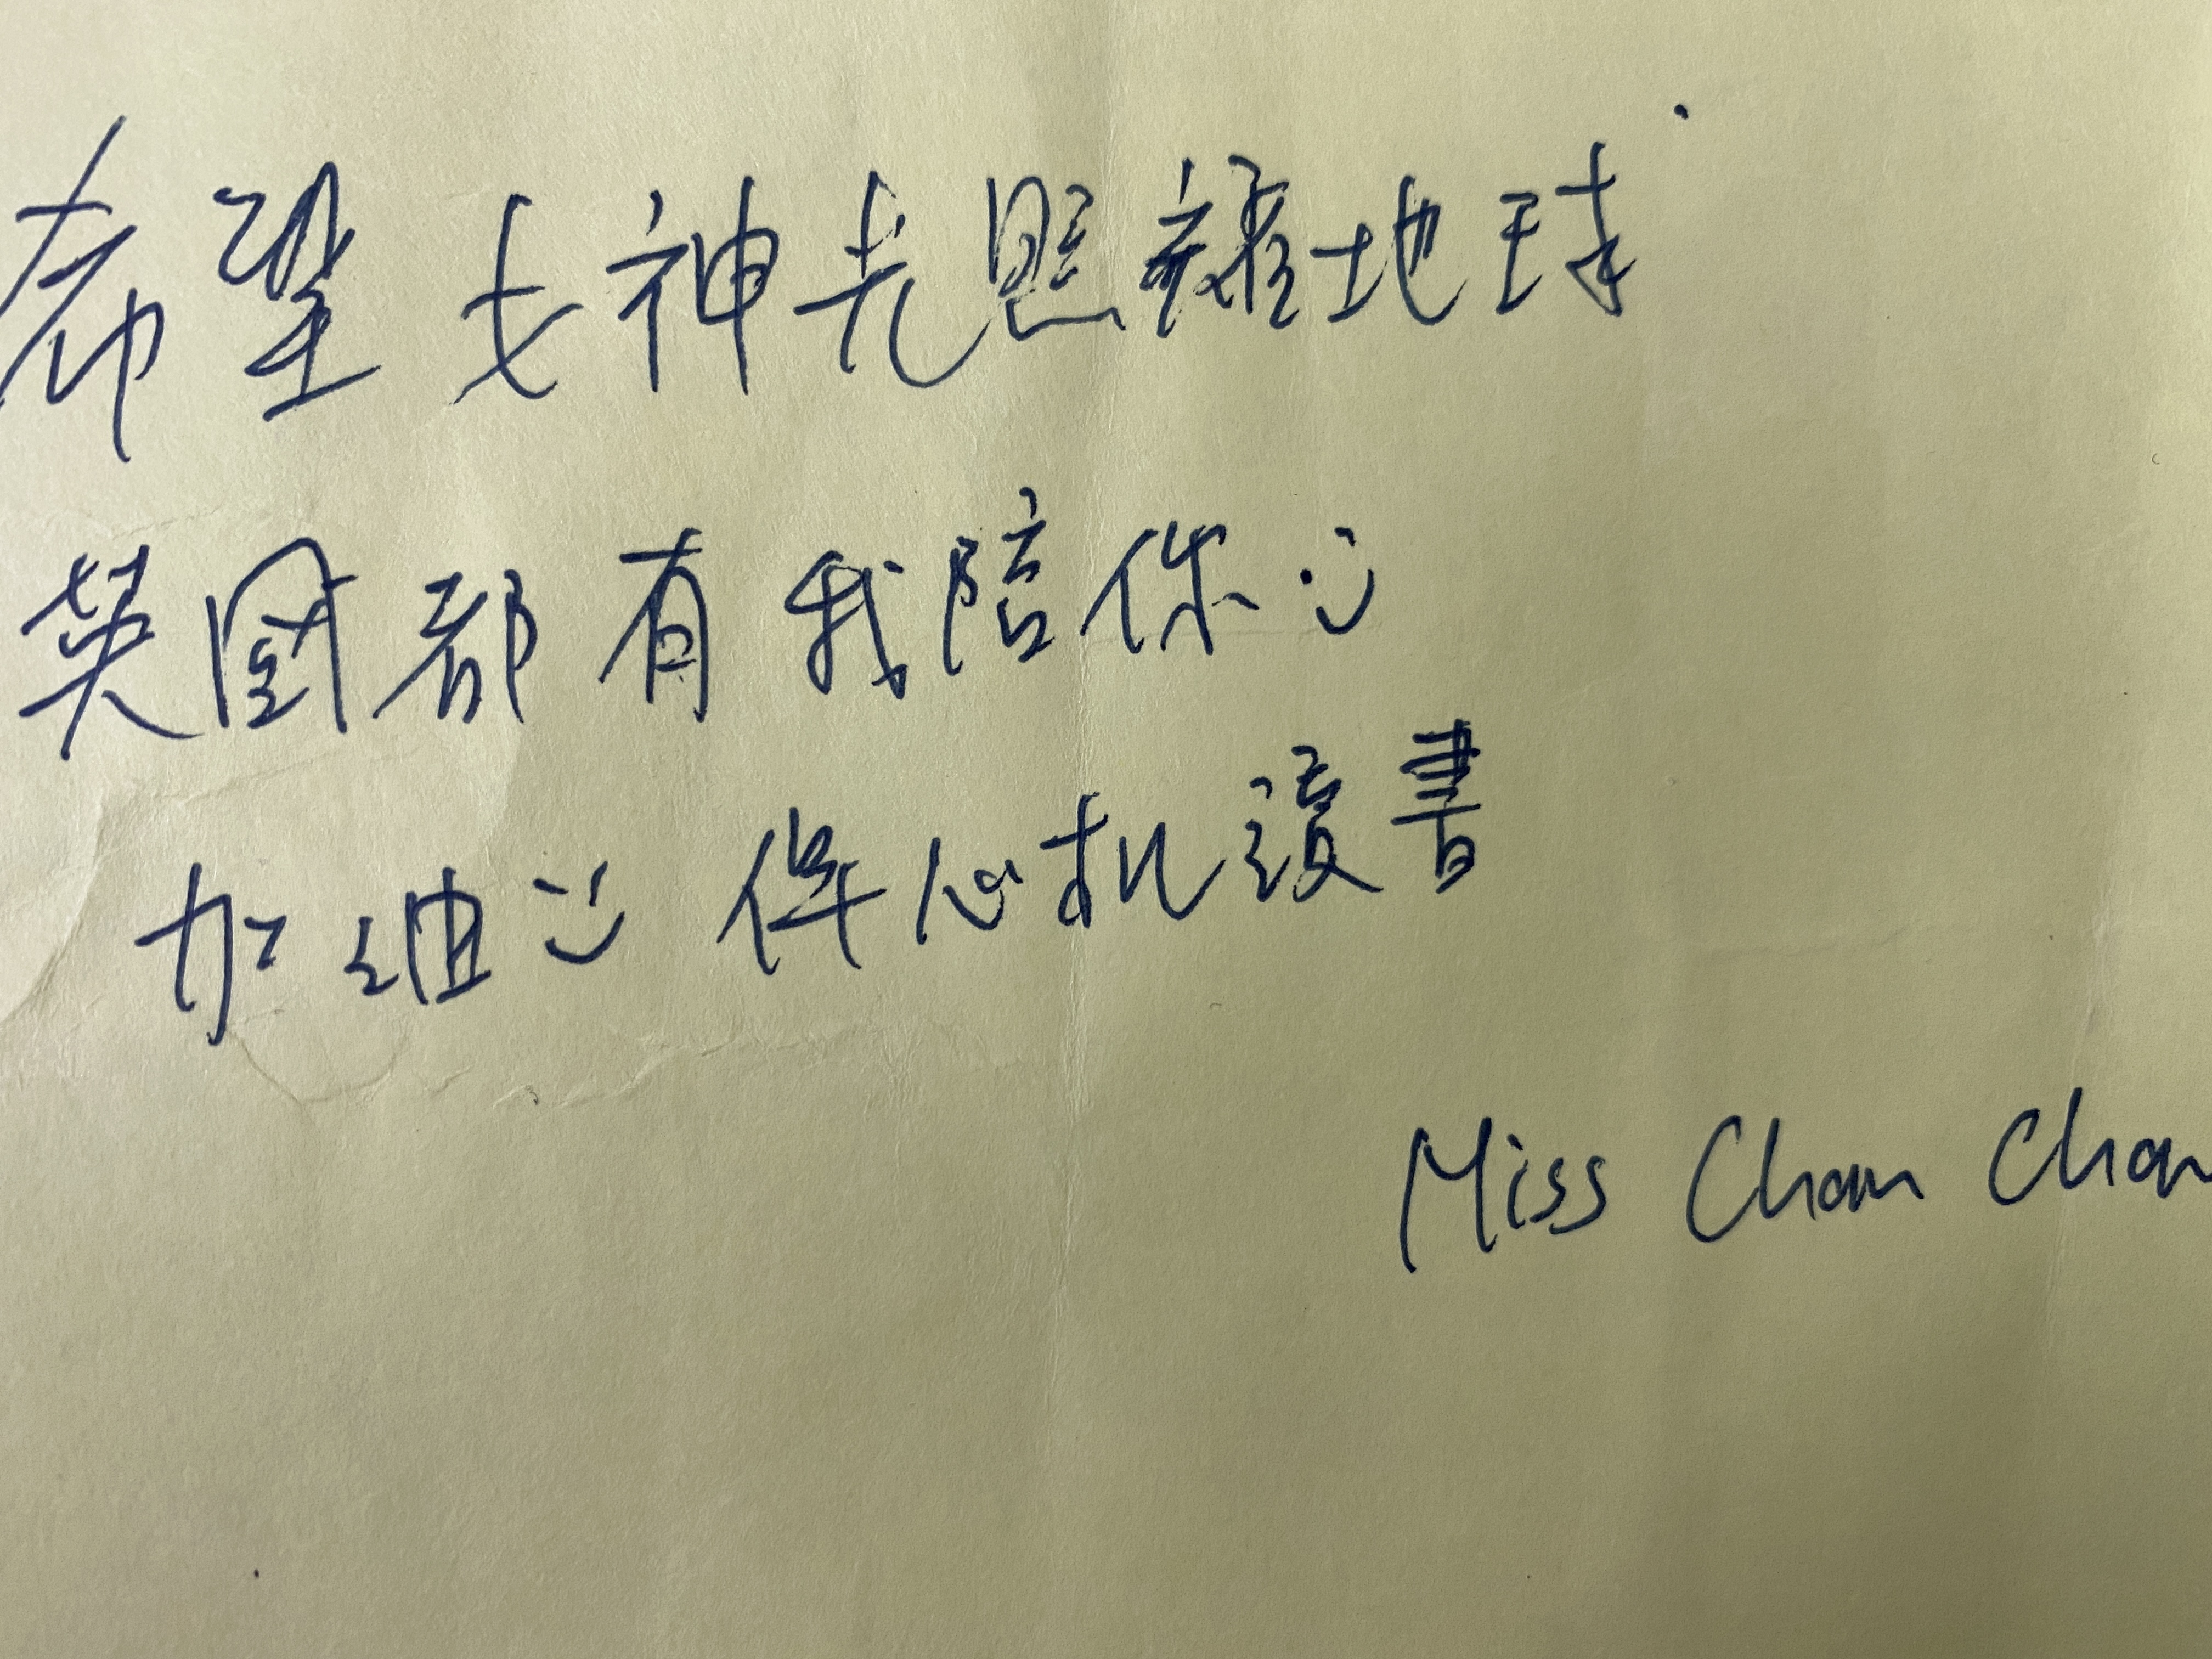 希望女神光照耀地球
英國都有我陪你:)
加油:) 俾心机讀書
Miss Chan Chan